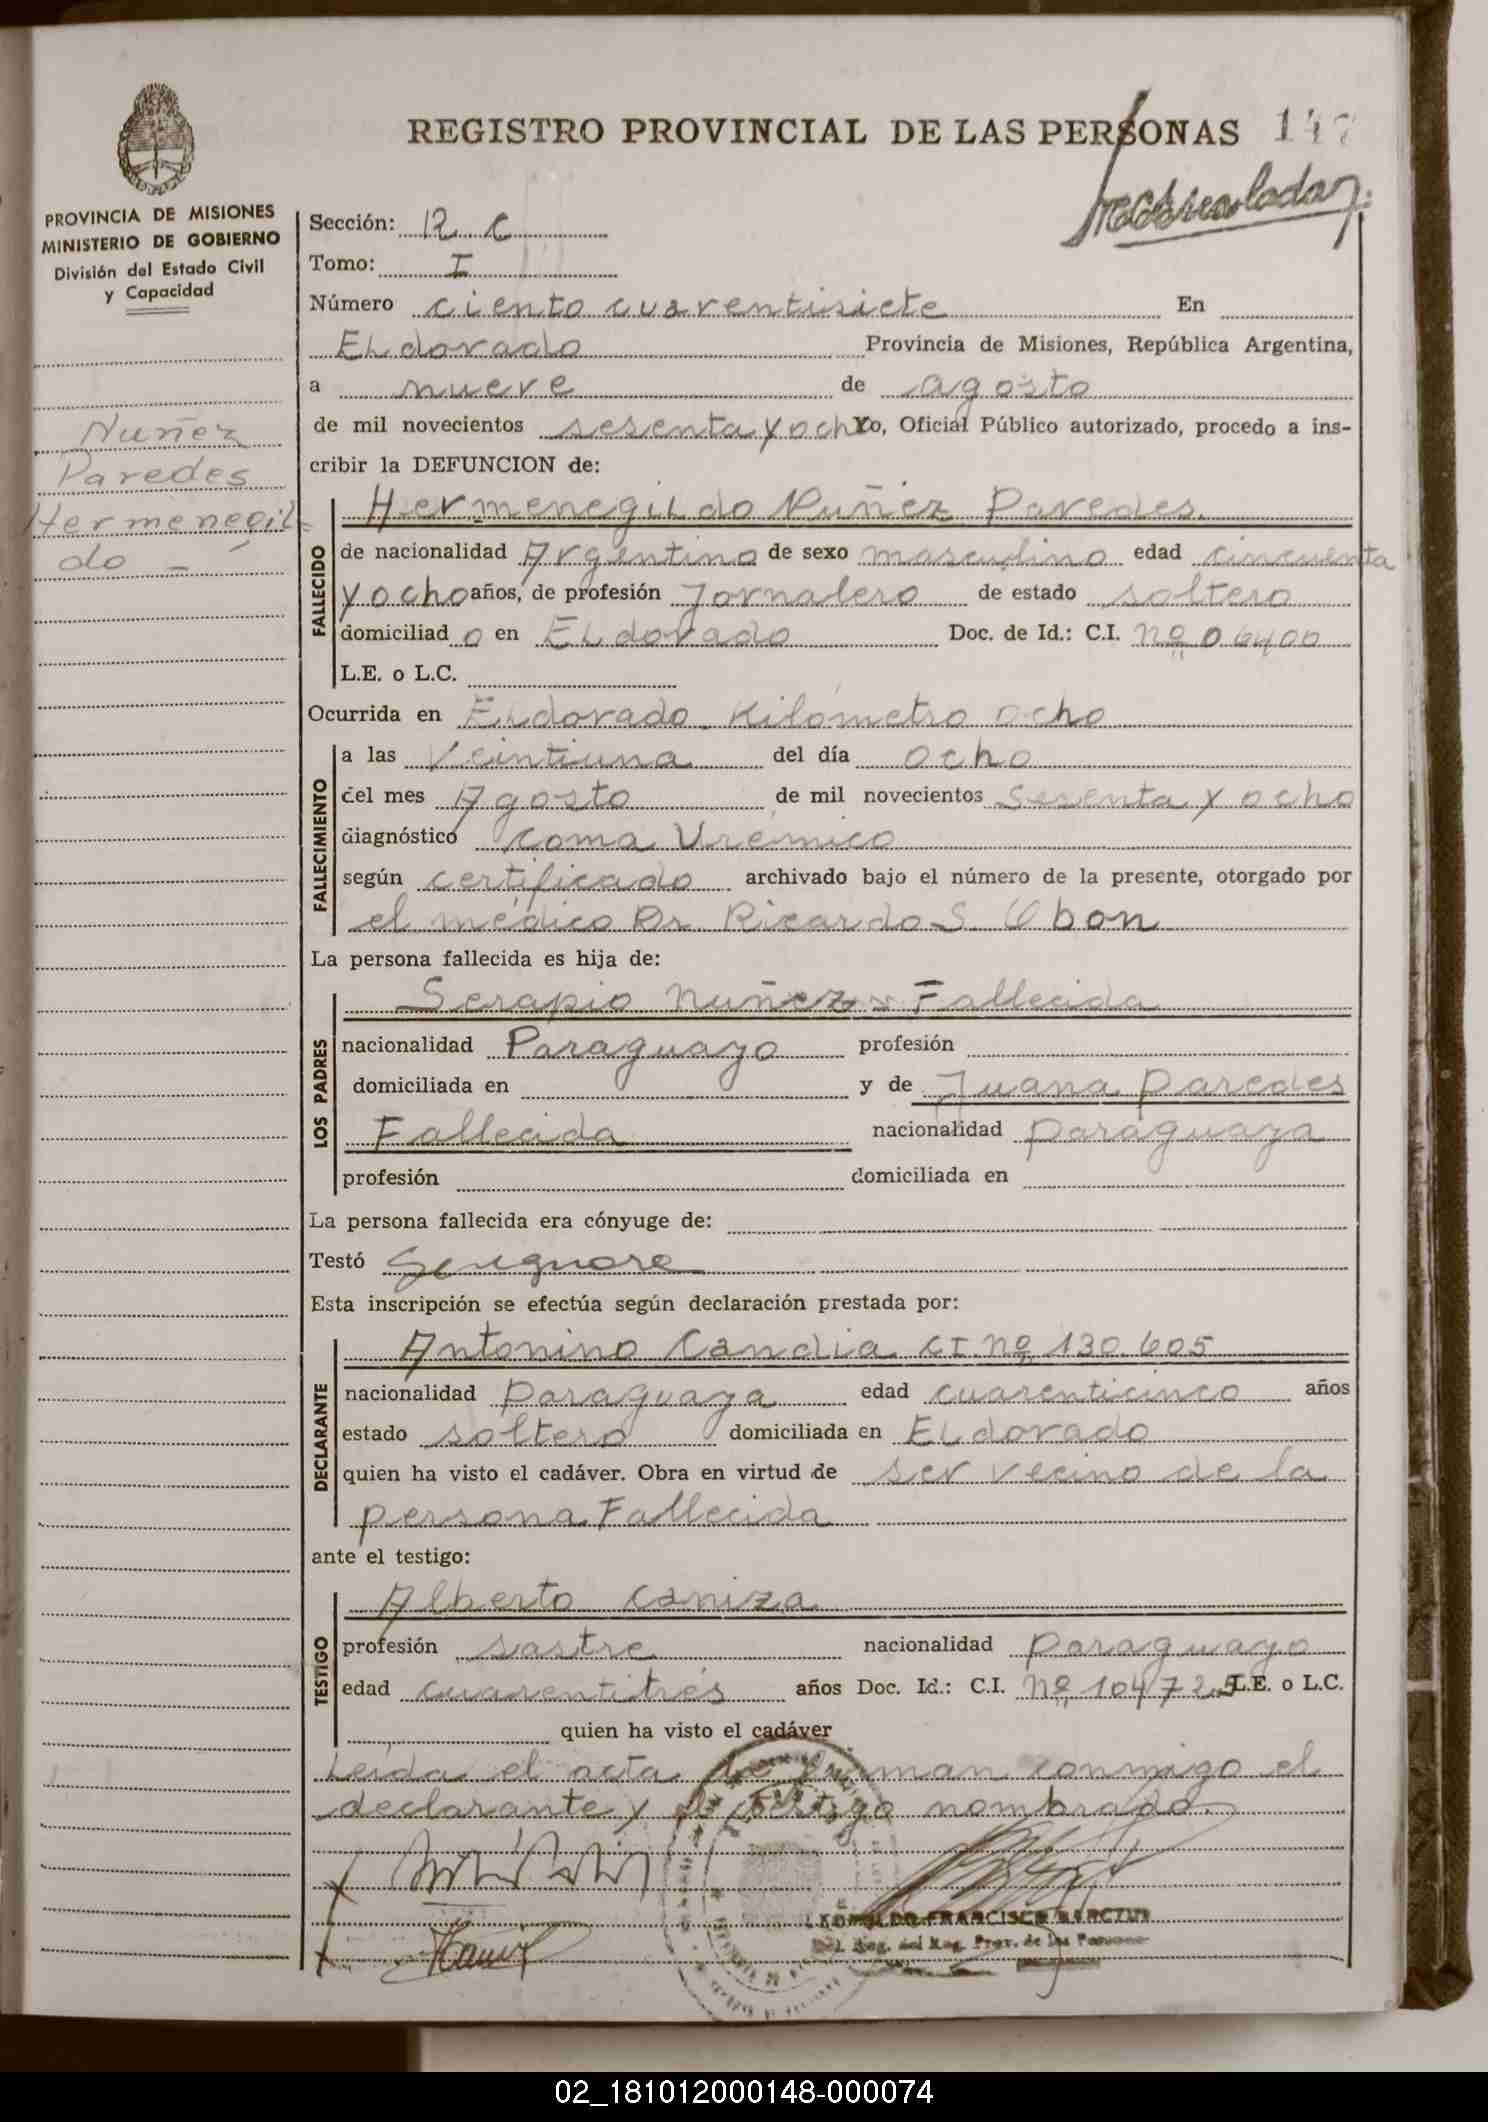 REGISTRO PROVINCIAL DE LAS PERSONAS 147
PROVINCIA DE MISIONES
MINISTERIO DE GOBIERNO
División del Estado Civil
y Capacidad
Nuñez
Paredes
Hermenegil-
do -
Sección: 12 C
Tomo: I
Número ciento cuarentisiete En
ELdorado Provincia de Misiones, República Argentina,
a nueve de agosto
de mil novecientos sesenta y ocho Yo, Oficial Público autorizado, procedo a ins-
cribir la DEFUNCION de:
HermenegiLdo Nuñez Paredes.
FALLECIDO
de nacionalidad Argentino de sexo masculino edad cincuenta
y ocho años, de profesión Jornalero de estado soltero
domiciliad o en ELdorado Doc. de Id.: C.I. Nº 06400
L.E. o L.C.
Ocurrida en ELdorado. Kilómetro ocho
FALLECIMIENTO
a las Veintiuna del día ocho
del mes Agosto de mil novecientos sesenta y ocho
diagnóstico coma Urémico
según certificado archivado bajo el número de la presente, otorgado por
el médico Dr. Ricardo S. Obon
La persona fallecida es hija de:
LOS PADRES
Serapio Nuñez - Fallecida
nacionalidad Paraguayo profesión
domiciliada en y de Juana Paredes
Fallecida nacionalidad paraguaya
profesión domiciliada en
La persona fallecida era cónyuge de:
Testó Se ignora
Esta inscripción se efectúa según declaración prestada por:
DECLARANTE
Antonino Candia CI. Nº 130.605
nacionalidad paraguaya edad cuarenticinco años
estado soltero domiciliada en ELdorado
quien ha visto el cadáver. Obra en virtud de ser vecino de la
persona Fallecida
ante el testigo:
TESTIGO
Alberto Caniza
profesión sastre nacionalidad paraguayo
edad cuarentitrés años Doc. Id.: C.I. Nº 104725 L.E. o L.C.
quien ha visto el cadáver
Leída el acta la firman conmigo el
declarante y el testigo nombrado.
LEOPOLDO FRANCISCO
Del. Reg. del Reg. Prov. de las Personas
02_181012000148-000074